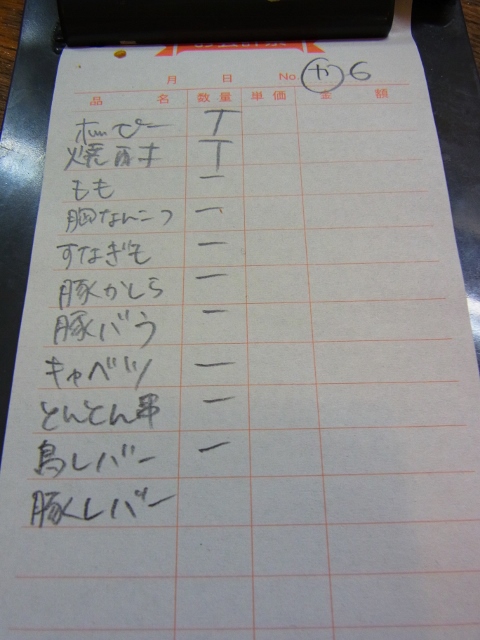 月 日 No. カ 6
品 名 数量 単価 金 額
ホッピー T
焼酎 T
もも 一
胸なんこつ 一
すなぎも 一
豚かしら 一
豚バラ 一
キャベツ 一
とんとん串 一
鳥レバー 一
豚レバー